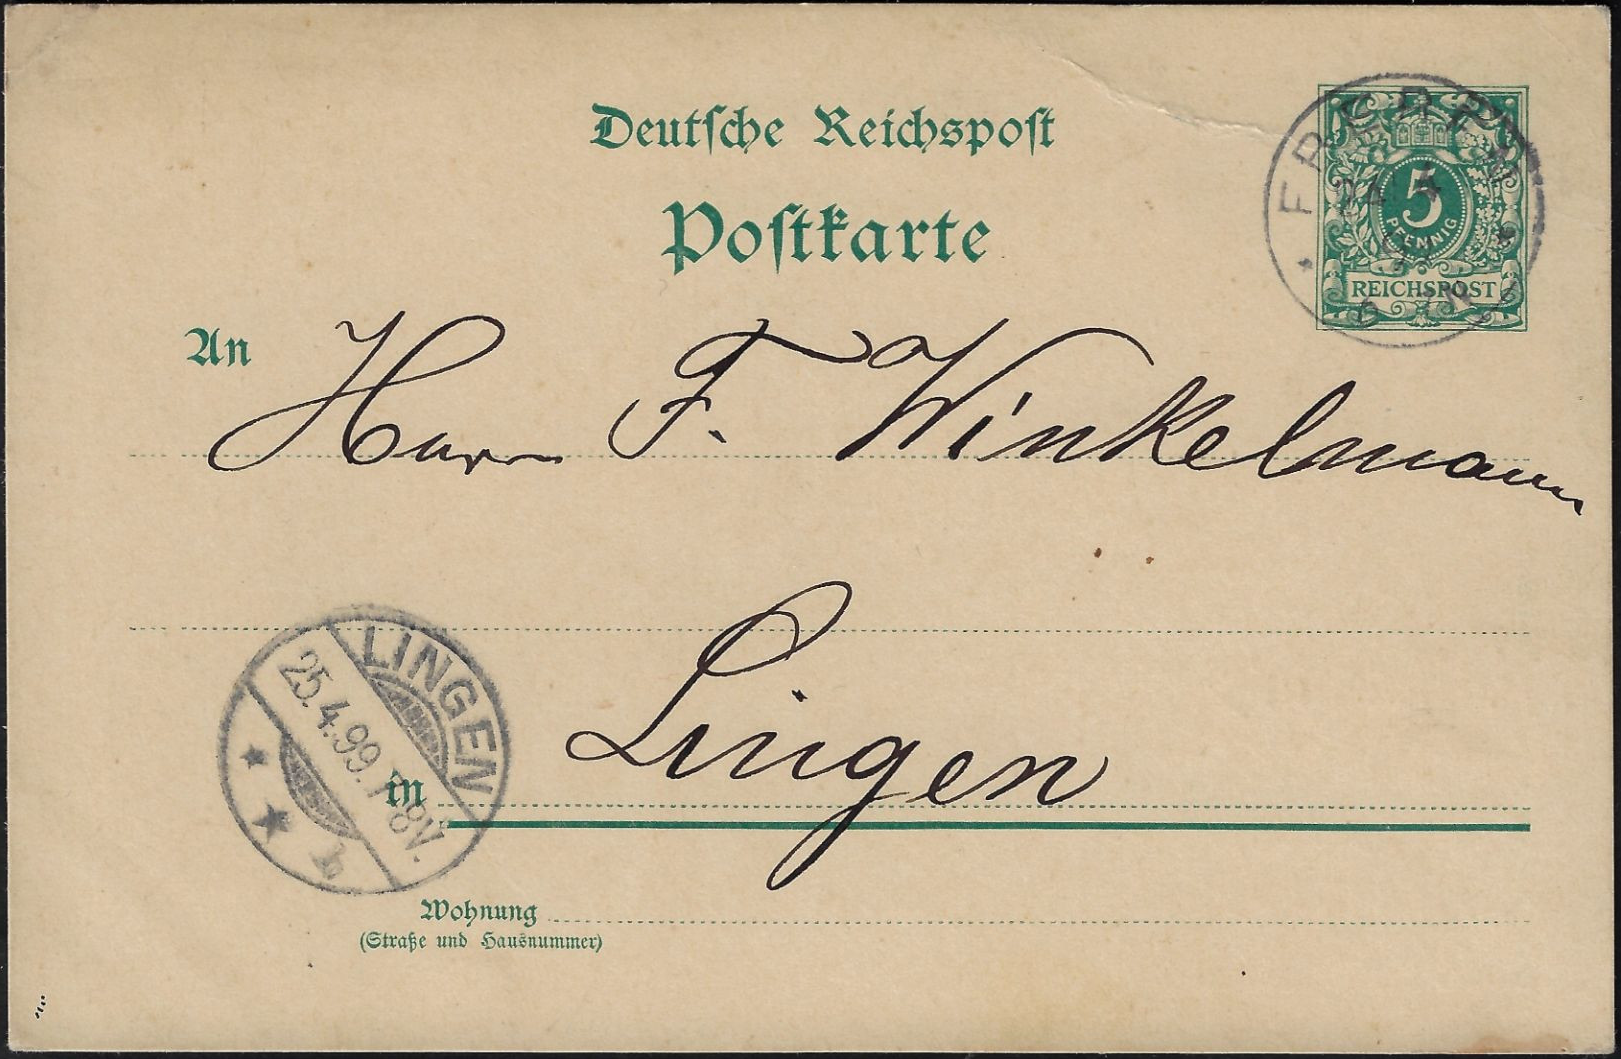 Deutsche Reichspost
Postkarte
5
PFENNIG
REICHSPOST
An Herrn F. Winkelmann
LINGEN
25.4.99. 7-8V.
b
in Lingen
Wohnung
(Straße und Hausnummer)